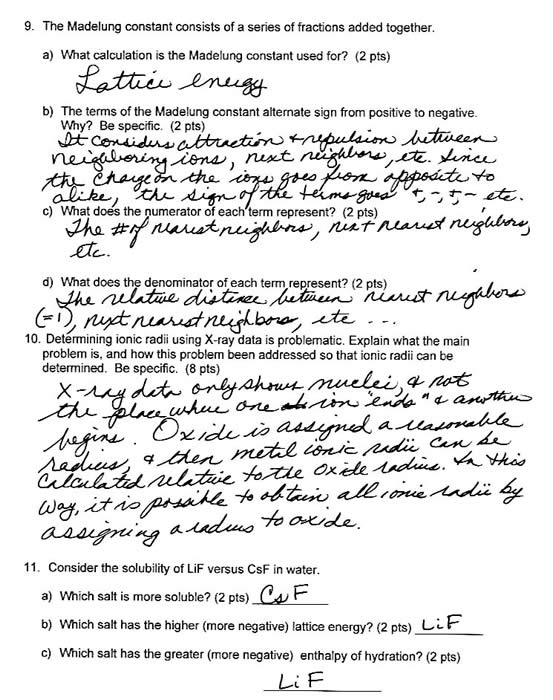 9. The Madelung constant consists of a series of fractions added together.
a) What calculation is the Madelung constant used for? (2 pts)
Lattice energy
b) The terms of the Madelung constant alternate sign from positive to negative.
Why? Be specific. (2 pts)
It considers attraction + repulsion between
neighboring ions, next neighbors, etc. Since
the charge on the ions goes from opposite to
alike, the sign of the terms goes +, -, +, - etc.
c) What does the numerator of each term represent? (2 pts)
The # of nearest neighbors, next nearest neighbors,
etc.
d) What does the denominator of each term represent? (2 pts)
The relative distance between nearest neighbors
(=1), next nearest neighbors, etc ...
10. Determining ionic radii using X-ray data is problematic. Explain what the main
problem is, and how this problem been addressed so that ionic radii can be
determined. Be specific. (8 pts)
X-ray data only shows nuclei, & not
the place where one ion "ends" & another
begins. Oxide is assigned a reasonable
radius, & then metal ionic radii can be
calculated relative to the oxide radius. In this
way, it is possible to obtain all ionic radii by
assigning a radius to oxide.
11. Consider the solubility of LiF versus CsF in water.
a) Which salt is more soluble? (2 pts) CsF
b) Which salt has the higher (more negative) lattice energy? (2 pts) LiF
c) Which salt has the greater (more negative) enthalpy of hydration? (2 pts)
LiF